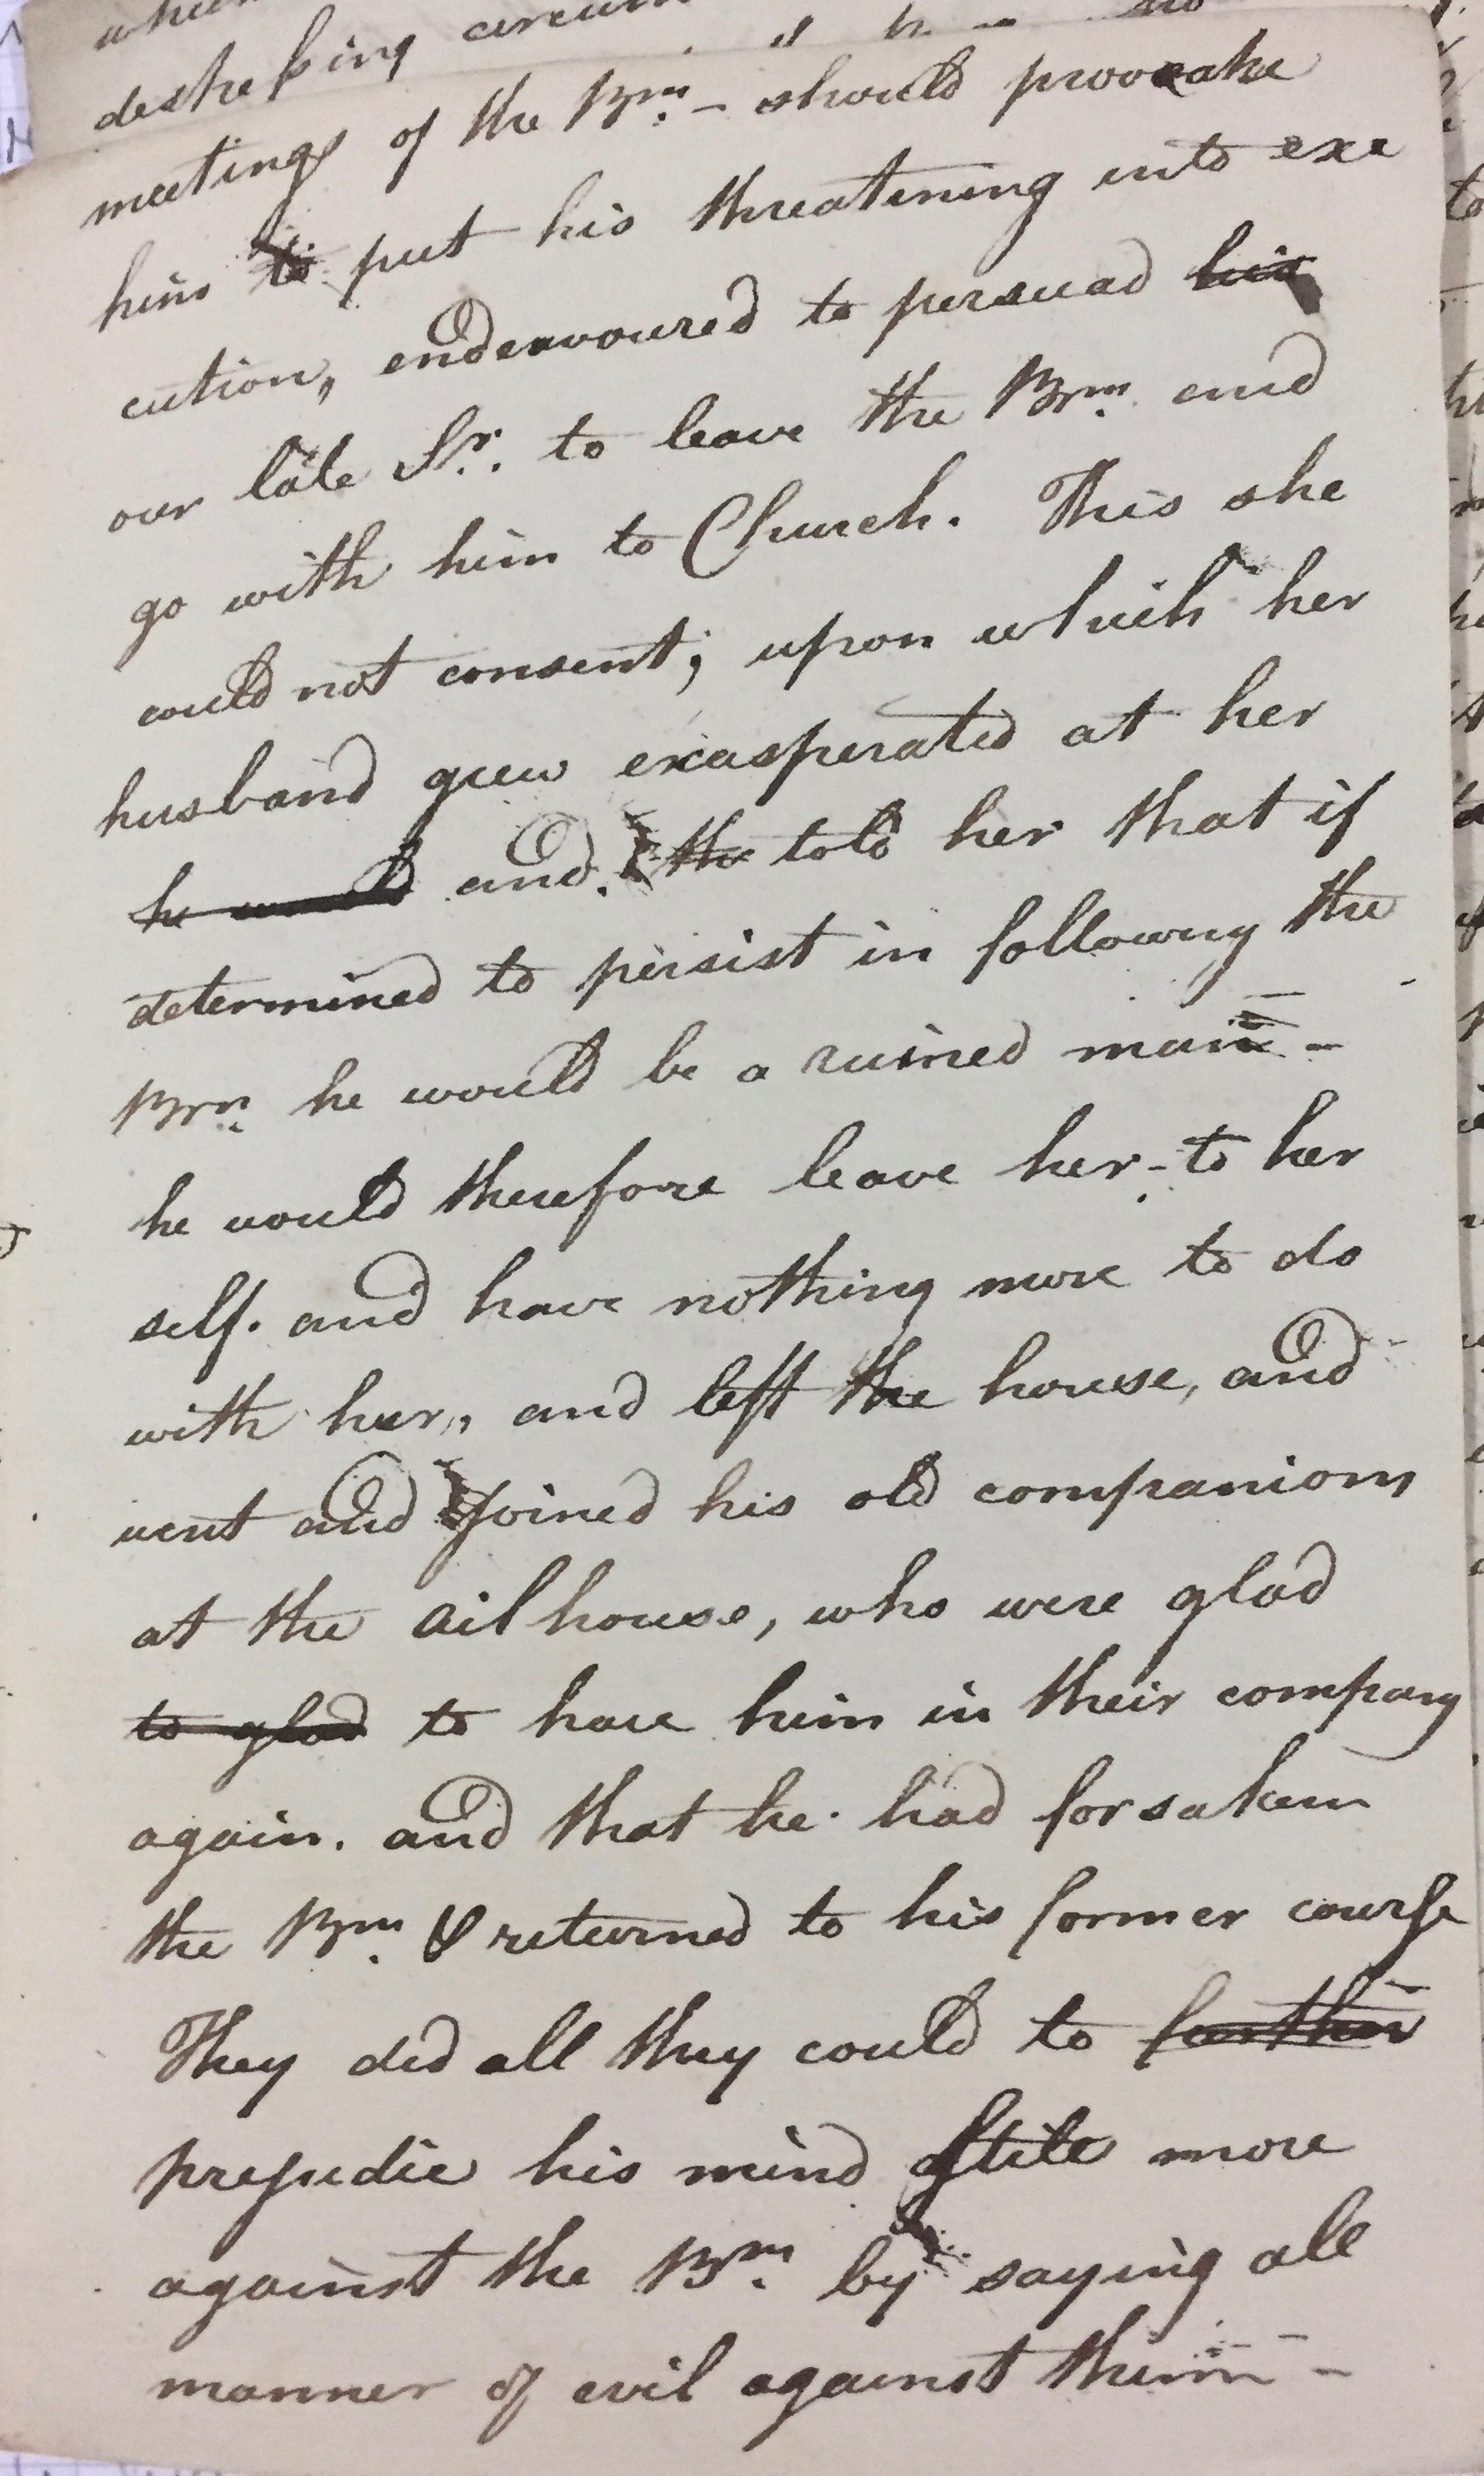 meetings of the Brn. - should provoake
him to put his threatening into exe
cution, endeavoured to persuad his
our late Sr. to leave the Brn. and
go with him to Church. This she
could not consent; upon which her
husband grew exasperated at her
he would and. the told her that if
determined to persist in followng the
Brn. he would be a ruined man -
he would therefore leave her - to her
self. and have nothing more to do
with her, and left the house, and
went and joined his old companions
at the ailhouse, who were glad
to glad to have him in their company
again. and that he had forsaken
the Brn. & returned to his former course
They did all they could to farther
prejudie his mind stile more
against the Brn. by saying all
manner of evil against them -